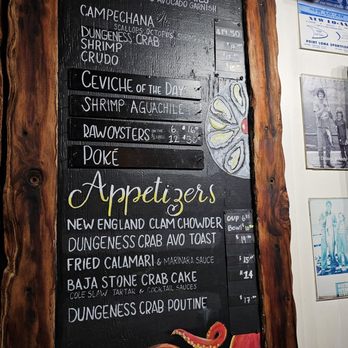 & AVOCADO GARNISH
CAMPECHANA
SCALLOPS OCTOPUS
DUNGENESS CRAB
SHRIMP
CRUDO
CEVICHE OF THE DAY
SHRIMP AGUACHILE
RAW OYSTERS ON THE 6
12
POKÉ
Appetizers
NEW ENGLAND CLAM CHOWDER CUP
BOWL
DUNGENESS CRAB AVO TOAST
FRIED CALAMARI & MARINARA SAUCE
BAJA STONE CRAB CAKE $14
COLE SLAW TARTAR & COCKTAIL SAUCES
DUNGENESS CRAB POUTINE $17